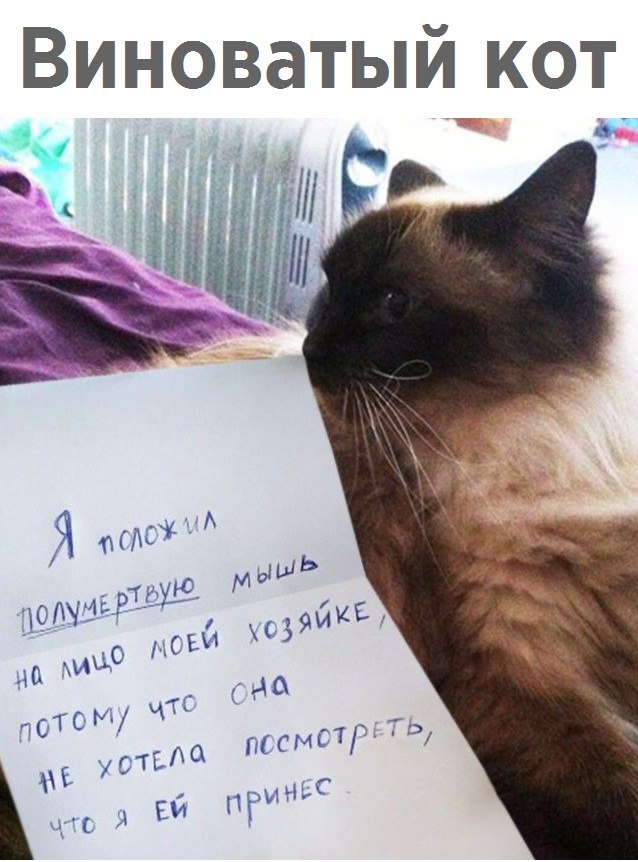 Виноватый кот
Я положил
полумертвую мышь
на лицо моей хозяйке,
потому что она
не хотела посмотреть,
что я ей принес.